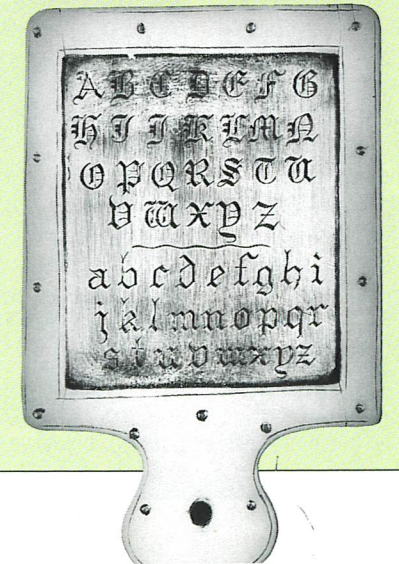 A B C D E F G
H I J K L M N
O P Q R S T U
V W X Y Z
a b c d e f g h i
j k l m n o p q r
s t u v w x y z